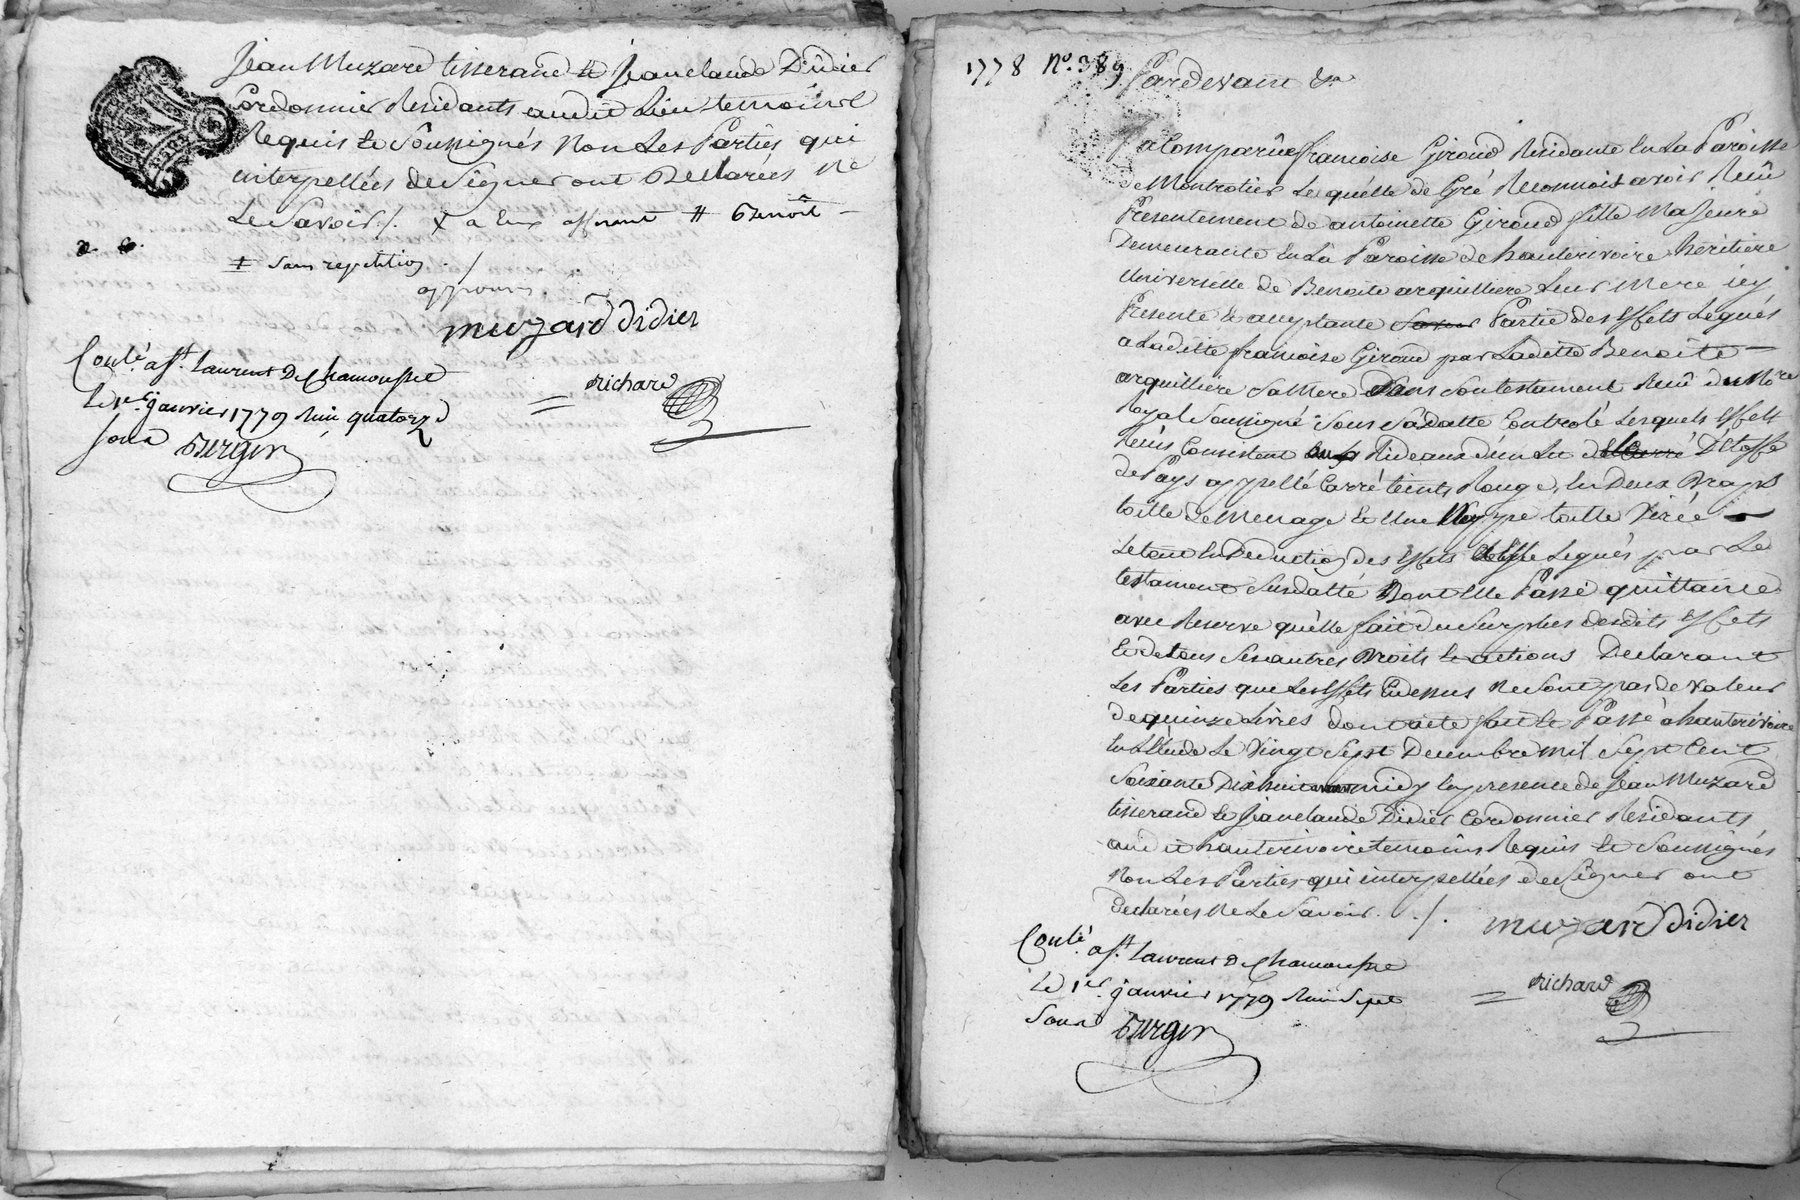 Jean Muzard tisserand et Jeanclaude Didier
Cordonnier Residants audit Lieu temoins
Requis et Soussignés Non Les Parties qui
interpellées de Signer ont Declarées Ne
Le Savoir /. x a Eux affirmé # Benoît —
# sans repetition /
approuvés
muzard didier
Conlé. a St. Laurent De Chamousset
Le 1er. janvier 1779 Reçu quatorze
sous
richard
Berger
1778 No. 389
Pardevant &a
A Comparûe francoise Giroud Residante En La Paroisse
de Montrotier Lequélle de Gré Reconnoit avoir Reçû
Presentement de antoinette Giroud fille Majeure
Demeurante En La Paroisse de hauterivoire héritiere
Universelle de Benoite arquilliere Leur Mere icy
Presente et acceptante Partie des Effets Legués
a Laditte francoise Giroud par Laditte Benoite —
arquilliere Sa Mere Dans Son testament Reçû du Nore
Royal Soussigné Sous Sa datte Controlé Lesquels Effets
Reçus Consistent Rideaux d'un Lit D'Etoffe
de Pays appellé Carré teints Rouge, En Deux Draps
toille de Menage et Une Nappe toille Virée —
Le tout En Deduction des Effets Legués par Le
testament Susdatté Dont Elle Passe quittance
avec Reserve qu'elle fait du Surplus desdits Effets
Et de tous Ses autres Droits et actions Declarant
Les Parties que Les Effets Cy dessus Ne Sont pas de Valeur
de quinze Livres dont acte fait et Passé a hauterivoire
En L'Etude Le Vingt Sept Decembre Mil Sept Cent
Soixante Dix huit avant midy En presence de Jean Muzard
tisserand et Jeanclaude Didier Cordonnier Residants
audit hauterivoire temoins Requis et Soussignés
Non Les Parties qui interpellées de Signer ont
declarées Ne Le Savoir. . /.
muzard didier
Conlé. a St. Laurent de Chamousset
Le 1er. janvier 1779 Reçu Sept
Sous
richard
Berger